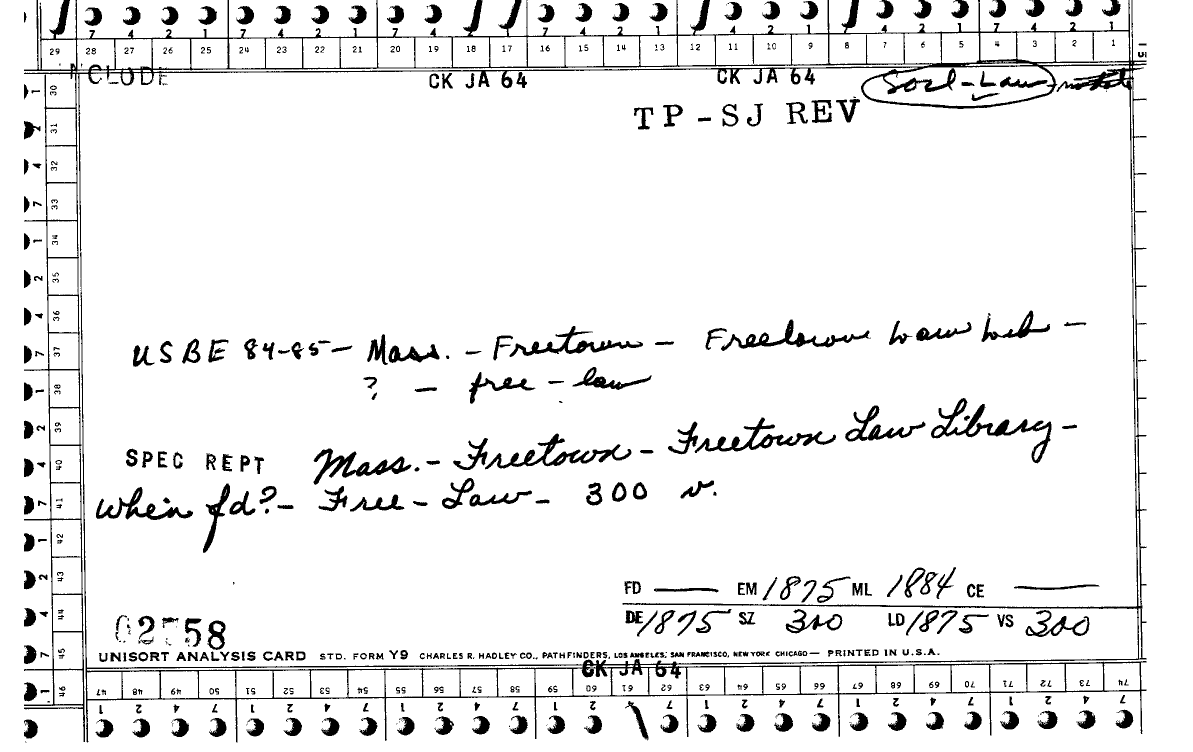 7 4 2 1 7 4 2 1 7 4 2 1 7 4 2 1 7 4 2 1 7 4 2 1
29 28 27 26 25 24 23 22 21 20 19 18 17 16 15 14 13 12 11 10 9 8 7 6 5 4 3 2 1
CLUDE CK JA 64 CK JA 64 Socl-Law
TP-SJ REV
30
31
32
33
34
35
36
37
38
39
40
41
42
43
44
45
46
USBE 84-85 - Mass. - Freetown - Freetown Law Lib -
? - free - law
SPEC REPT Mass. - Freetown - Freetown Law Library -
when fd? - Free - Law - 300 v.
FD — EM 1875 ML 1884 CE —
DE 1875 SZ 300 LD 1875 VS 300
58
UNISORT ANALYSIS CARD STD. FORM Y9 CHARLES R. HADLEY CO., PATHFINDERS, LOS ANGELES, SAN FRANCISCO, NEW YORK CHICAGO — PRINTED IN U.S.A.
CK JA 64
47 48 49 50 51 52 53 54 55 56 57 58 59 60 61 62 63 64 65 66 67 68 69 70 71 72 73 74
1 2 4 7 1 2 4 7 1 2 4 7 1 2 7 1 2 4 7 1 2 4 7 1 2 4 7